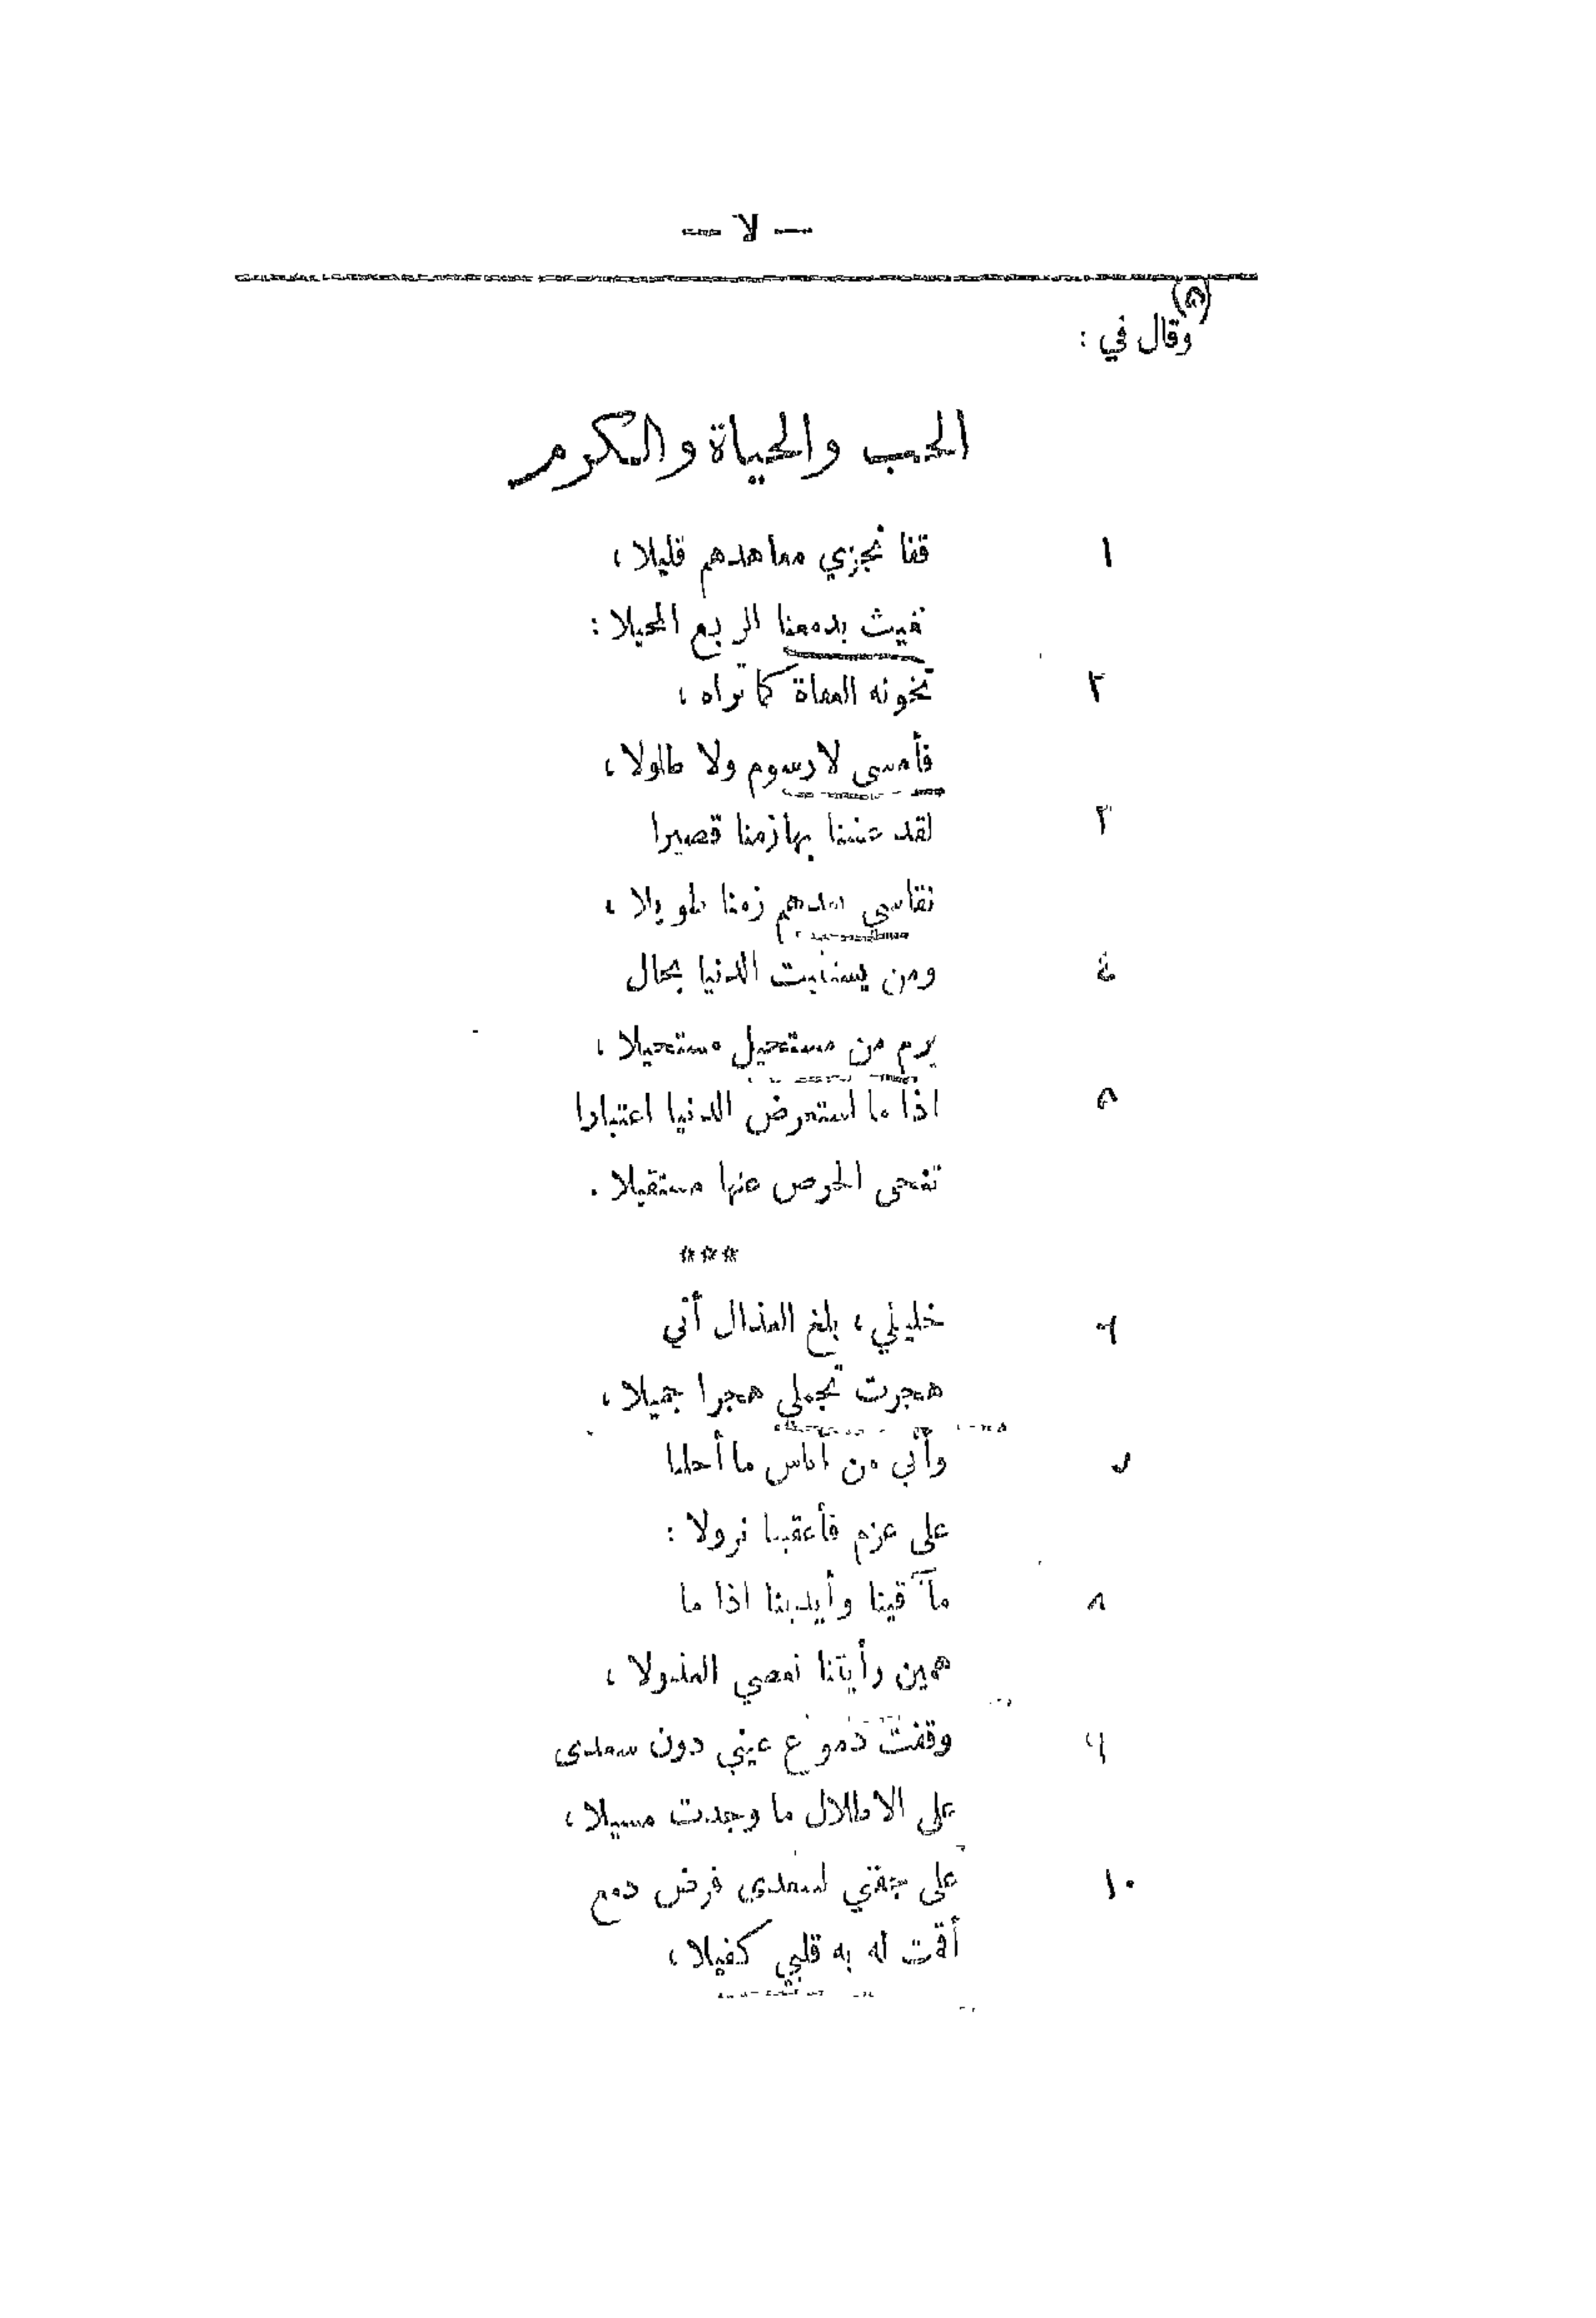 — لا —
(٥)
وقال في :
الحب والحياة والكرم
١ قفا نجزي معاهدهم قليلا ،
نغيث بدمعنا الربع المحيلا :
٢ تخونه العفاة كما تراه ،
فأمسى لا رسوم ولا طلولا ،
٣ لقد عشنا بها زمنا قصيرا
نقاسي بعدهم زمنا طويلا ،
٤ ومن يستثبت الدنيا بحال
يرم من مستحيل مستحيلا ،
٥ اذا ما استعرض الدنيا اعتبارا
تنحى الحرص عنها مستقيلا .
***
٦ خليلي ، بلغ العذال أني
هجرت تجملي هجرا جميلا ،
٧ وأني من أناس ما أحلنا
على عزم فأعقبنا نزولا :
٨ مآقينا وأيدينا اذا ما
همين رأيتنا نعصي العذولا ،
٩ وقفت دموع عيني دون سعدى
على الاطلال ما وجدت مسيلا ،
١٠ على جفني لسعدى فرض دمع
أقمت له به قلبي كفيلا ،